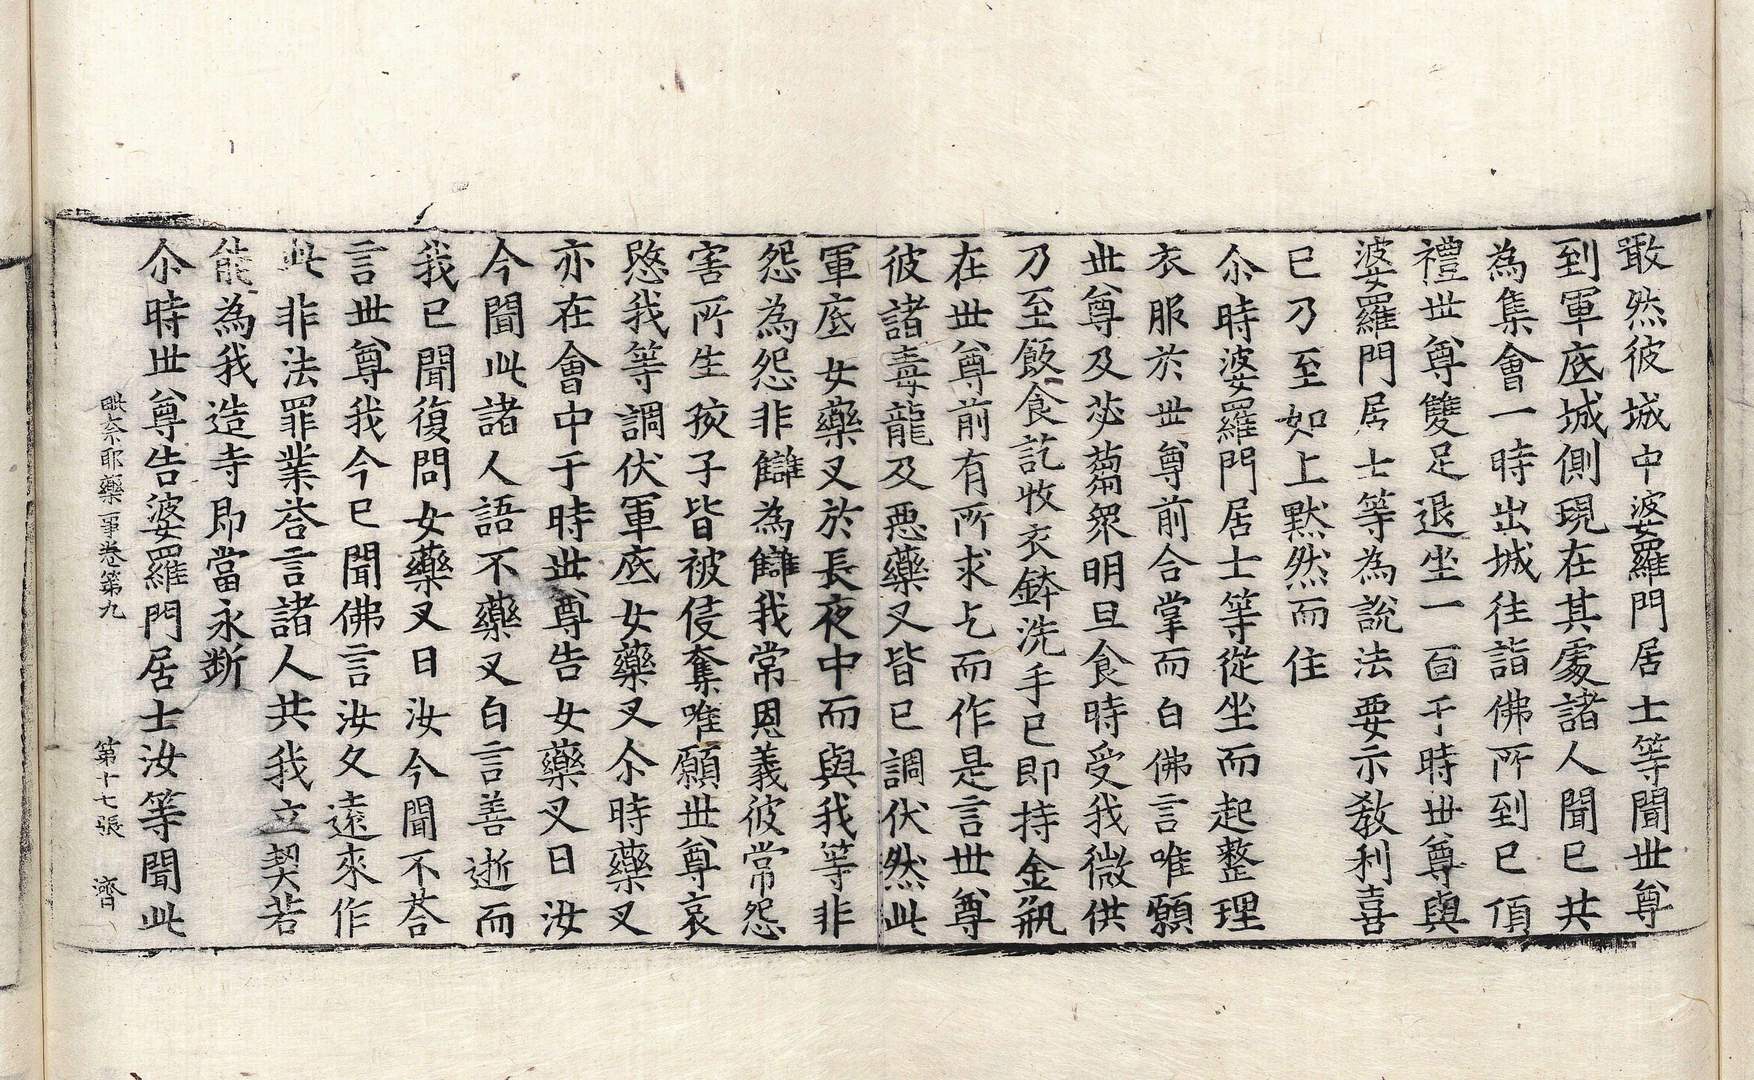 敢然彼城中婆羅門居士等聞世尊
到軍底城側現在其處諸人聞已共
為集會一時出城往詣佛所到已頂
禮世尊雙足退坐一面于時世尊與
婆羅門居士等為說法要示教利喜
已乃至如上默然而住
尒時婆羅門居士等從坐而起整理
衣服於世尊前合掌而白佛言唯願
世尊及苾蒭衆明旦食時受我微供
乃至飯食訖收衣鉢洗手已即持金瓶
在世尊前有所求乞而作是言世尊
彼諸毒龍及惡藥叉皆已調伏然此
軍底女藥叉於長夜中而與我等非
怨為怨非讎為讎我常恩義彼常怨
害所生孩子皆被侵奪唯願世尊哀
愍我等調伏軍底女藥叉尒時藥叉
亦在會中于時世尊告女藥叉曰汝
今聞此諸人語不藥叉白言善逝而
我已聞復問女藥叉曰汝今聞不荅
言世尊我今已聞佛言汝久遠來作
此非法罪業荅言諸人共我立契若
能為我造寺即當永斷
尒時世尊告婆羅門居士汝等聞此
毗奈耶藥事卷第九 第十七張 濟